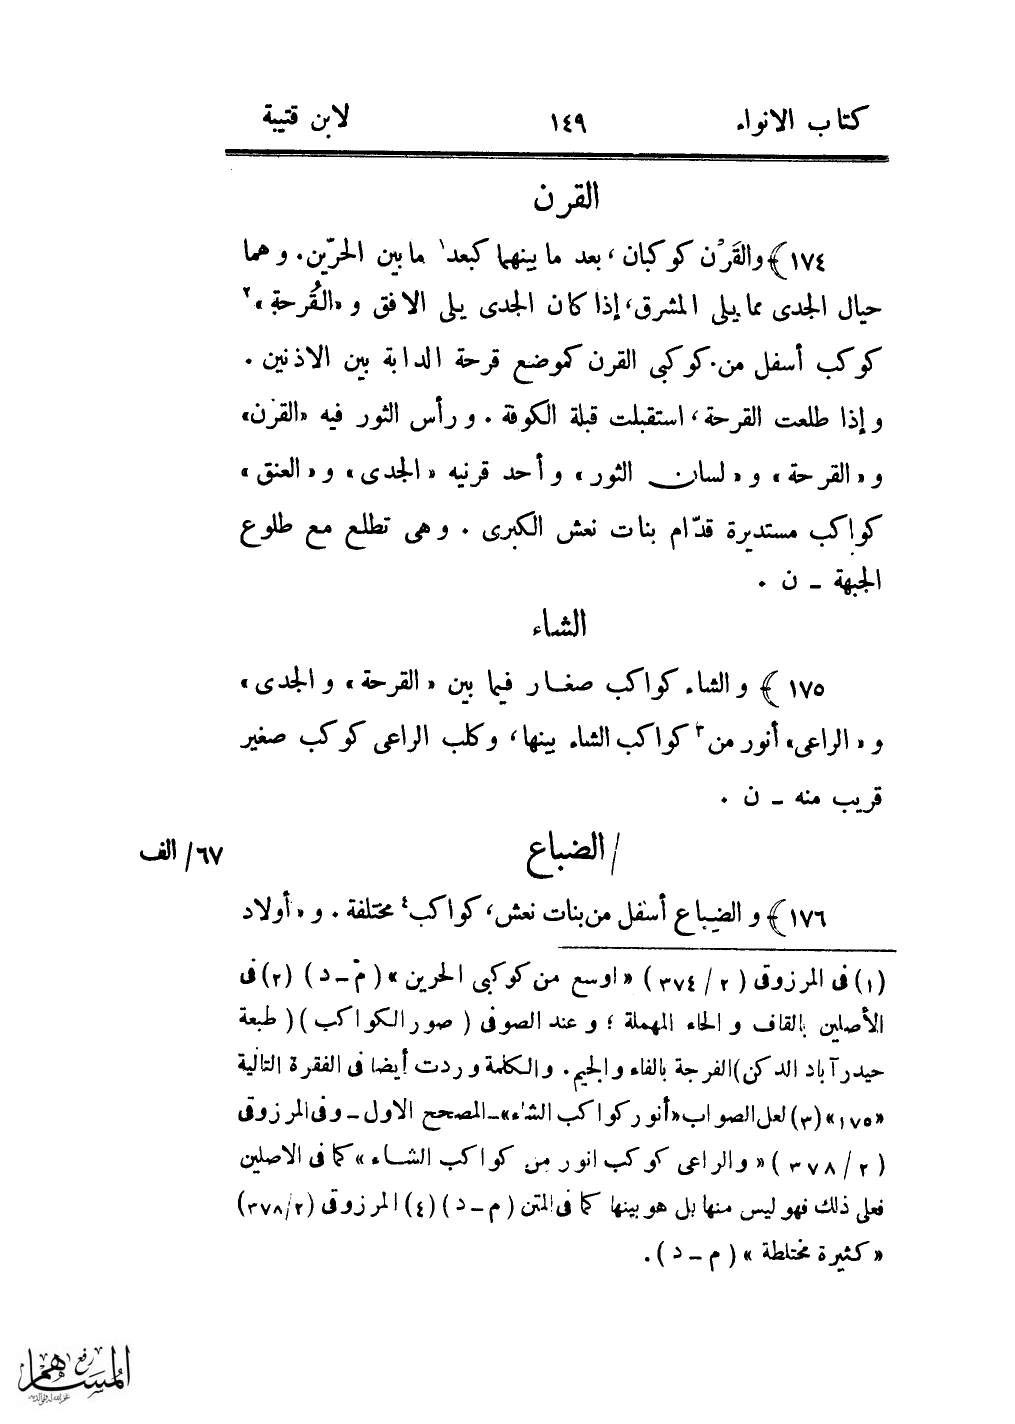 كتاب الانواء ١٤٩ لابن قتيبة
القرن
١٧٤﴾ والقَرْن كوكبان ، بعد ما بينهما كبعد١ ما بين الحرّين . و هما
حيال الجدى مما يلى المشرق ، إذا كان الجدى يلى الافق و «القُرحة»٢
كوكب أسفل من كوكبى القرن كموضع قرحة الدابة بين الاذنين .
و إذا طلعت القرحة ، استقبلت قبلة الكوفة . و رأس الثور فيه «القرن»
و « القرحة » و « لسان الثور » و أحد قرنيه « الجدى » و « العنق »
كواكب مستديرة قدّام بنات نعش الكبرى . و هى تطلع مع طلوع
الجبهة ـ ن .
الشاء
١٧٥﴾ و الشاء كواكب صغار فيما بين « القرحة » و الجدى »
و « الراعى » أنور من٣ كواكب الشاء بينها ، وكلب الراعى كوكب صغير
قريب منه ـ ن .
/ الضباع ٦٧/ الف
١٧٦﴾ و الضباع أسفل من بنات نعش ، كواكب٤ مختلفة . و « أولاد
(١) فى المرزوقى ( ٢ / ٣٧٤ ) « اوسع من كوكبى الحرين » ( م ـ د ) (٢) فى
الأصلين بالقاف و الحاء المهملة ؛ و عند الصوفى ( صور الكواكب ) ( طبعة
حيدرآباد الدكن ) الفرجة بالفاء والجيم . والكلمة وردت أيضا فى الفقرة التالية
«١٧٥» (٣) لعل الصواب «أنور كواكب الشاء» ـ المصحح الاول ـ وفى المرزوقى
( ٢ / ٣٧٨ ) « والراعى كوكب انور من كواكب الشاء » كما فى الاصلين
فعلى ذلك فهو ليس منها بل هو بينها كما فى المتن ( م ـ د ) (٤) المرزوقى (٣٧٨/٢)
« كثيرة مختلطة » ( م ـ د ) .